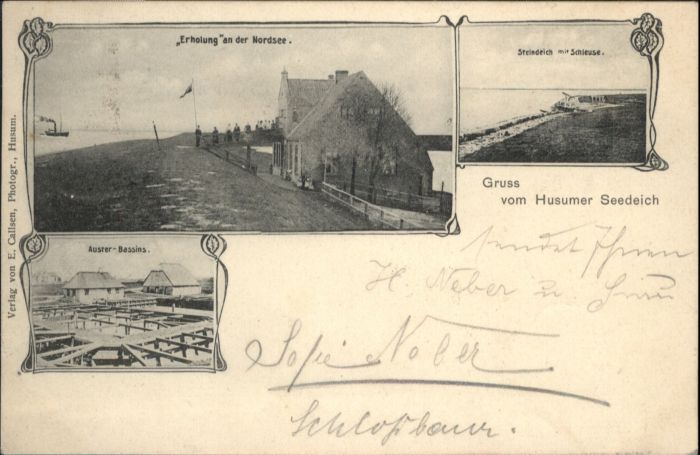 „Erholung" an der Nordsee.
Steindeich mit Schleuse.
Gruss
vom Husumer Seedeich
Auster-Bassins.
Verlag von E. Callsen, Photogr., Husum.
sendet Ihnen
H. Neber u. Frau
Sofie Nober
Schloßbaur.